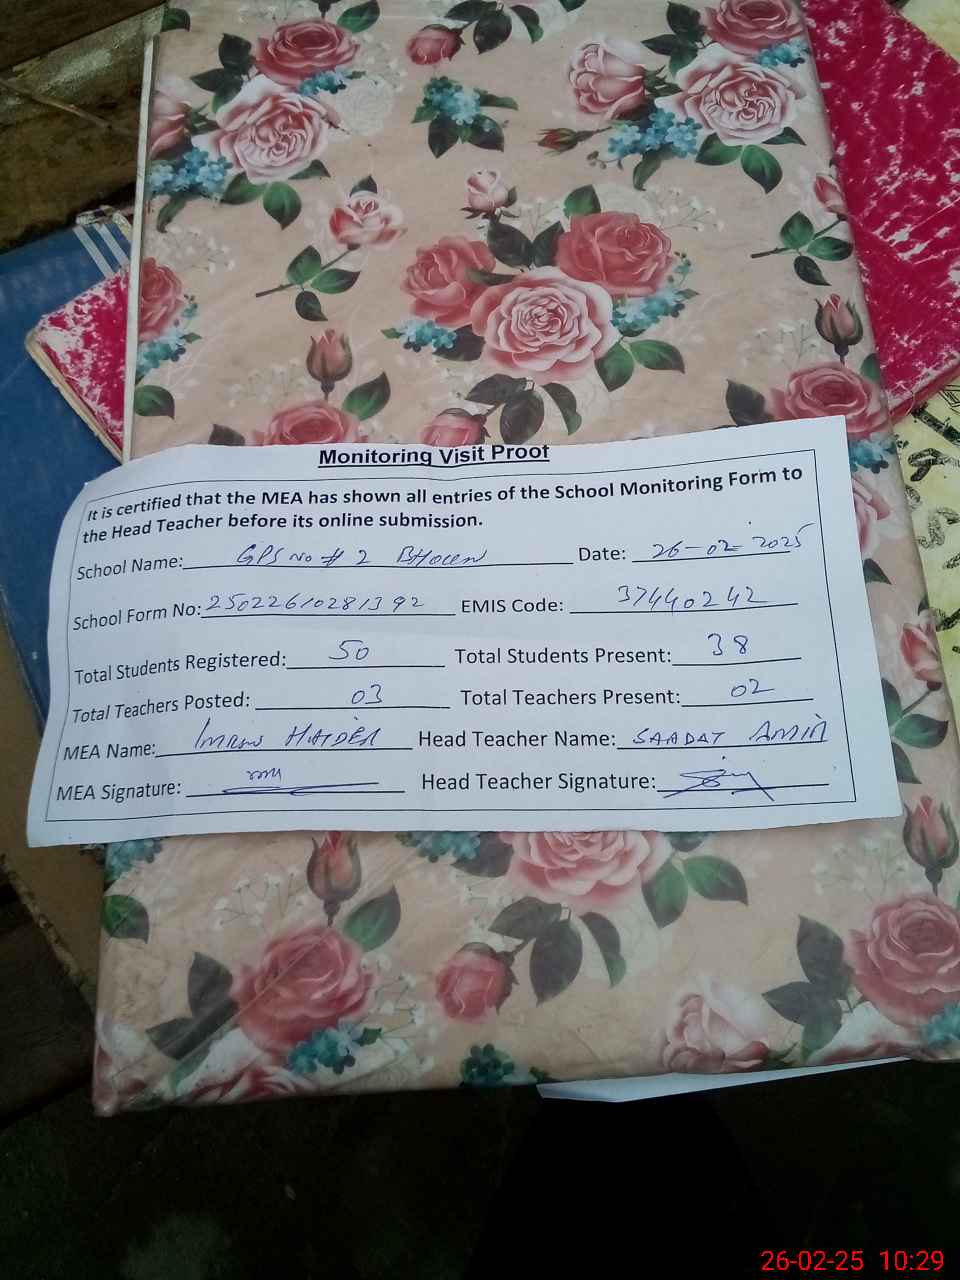 Monitoring Visit Proof
It is certified that the MEA has shown all entries of the School Monitoring Form to
the Head Teacher before its online submission.
School Name: GPS No # 2 Bhoun Date: 26-02-2025
School Form No: 25022610281392 EMIS Code: 37440242
Total Students Registered: 50 Total Students Present: 38
Total Teachers Posted: 03 Total Teachers Present: 02
MEA Name: Imran HAIDER Head Teacher Name: SAADAT AMIN
MEA Signature: Head Teacher Signature:
26-02-25 10:29